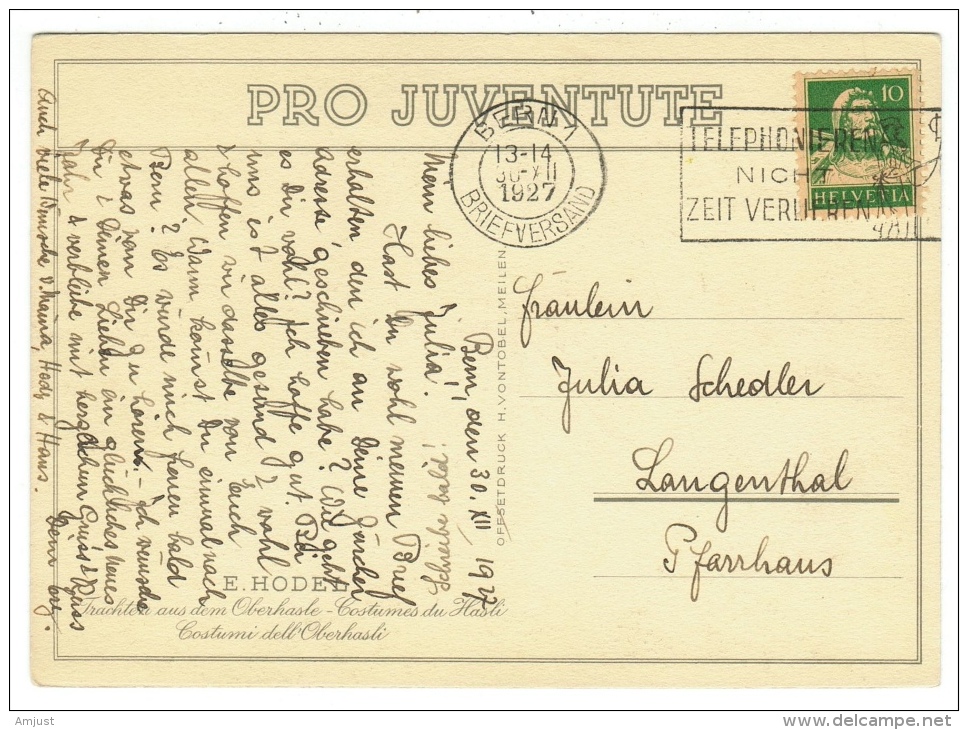 PRO JUVENTUTE
BERN 1
13-14
30·XII
1927
BRIEFVERSAND
TELEPHONIEREN
NICHT
ZEIT VERLIEREN
10
HELVETIA
Bern, den 30. XII 1927
Mein liebes Julia!
Hast Du wohl meinen Brief
erhalten den ich an Deine Zürcher
Adresse geschrieben habe? Wie geht
es Dir wohl? Ich hoffe gut. Bei
uns ist alles gesund & wohl
& hoffen wir dasselbe von Euch
allen. Wann kommst Du einmal nach
Bern? Es würde mich freuen bald
etwas von Dir zu hören. - Ich wünsche
Dir & Deinen Lieben ein glückliches neues
Jahr & verbleibe mit herzlichem Gruss & Kuss
Dein
Auch viele Wünsche v. Mama, Hedy & Hans.
Schreibe bald!
Fräulein
Julia Schedler
Langenthal
Pfarrhaus
OFFSETDRUCK H. VONTOBEL, MEILEN
E. HODEL
Trachten aus dem Oberhasle - Costumes du Hasli
Costumi dell'Oberhasli
Amjust
delcampe.net